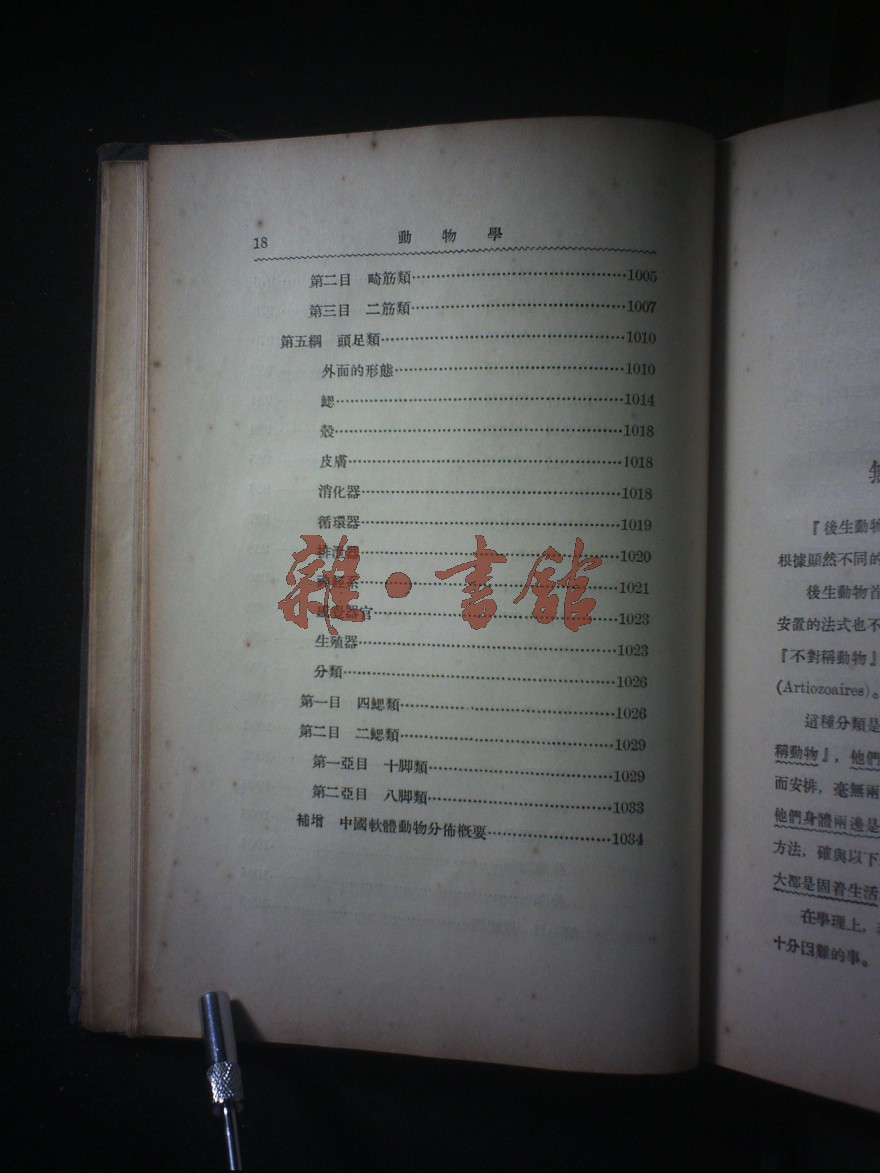 18 動物學
第二目 畸筋類……1005
第三目 二筋類……1007
第五綱 頭足類……1010
外面的形態……1010
鰓……1014
殼……1018
皮膚……1018
消化器……1018
循環器……1019
排洩器……1020
神經系……1021
感覺器官……1023
生殖器……1023
分類……1026
第一目 四鰓類……1026
第二目 二鰓類……1029
第一亞目 十脚類……1029
第二亞目 八脚類……1033
補增 中國軟體動物分佈概要……1034
雜·書館
『後生動物
根據顯然不同的
後生動物首
安置的法式也不
『不對稱動物』
(Artiozoaires)。
這種分類是
稱動物』，他們
而安排，毫無兩
他們身體兩邊是
方法，確與以下
大都是固着生活
在學理上，
十分困難的事。